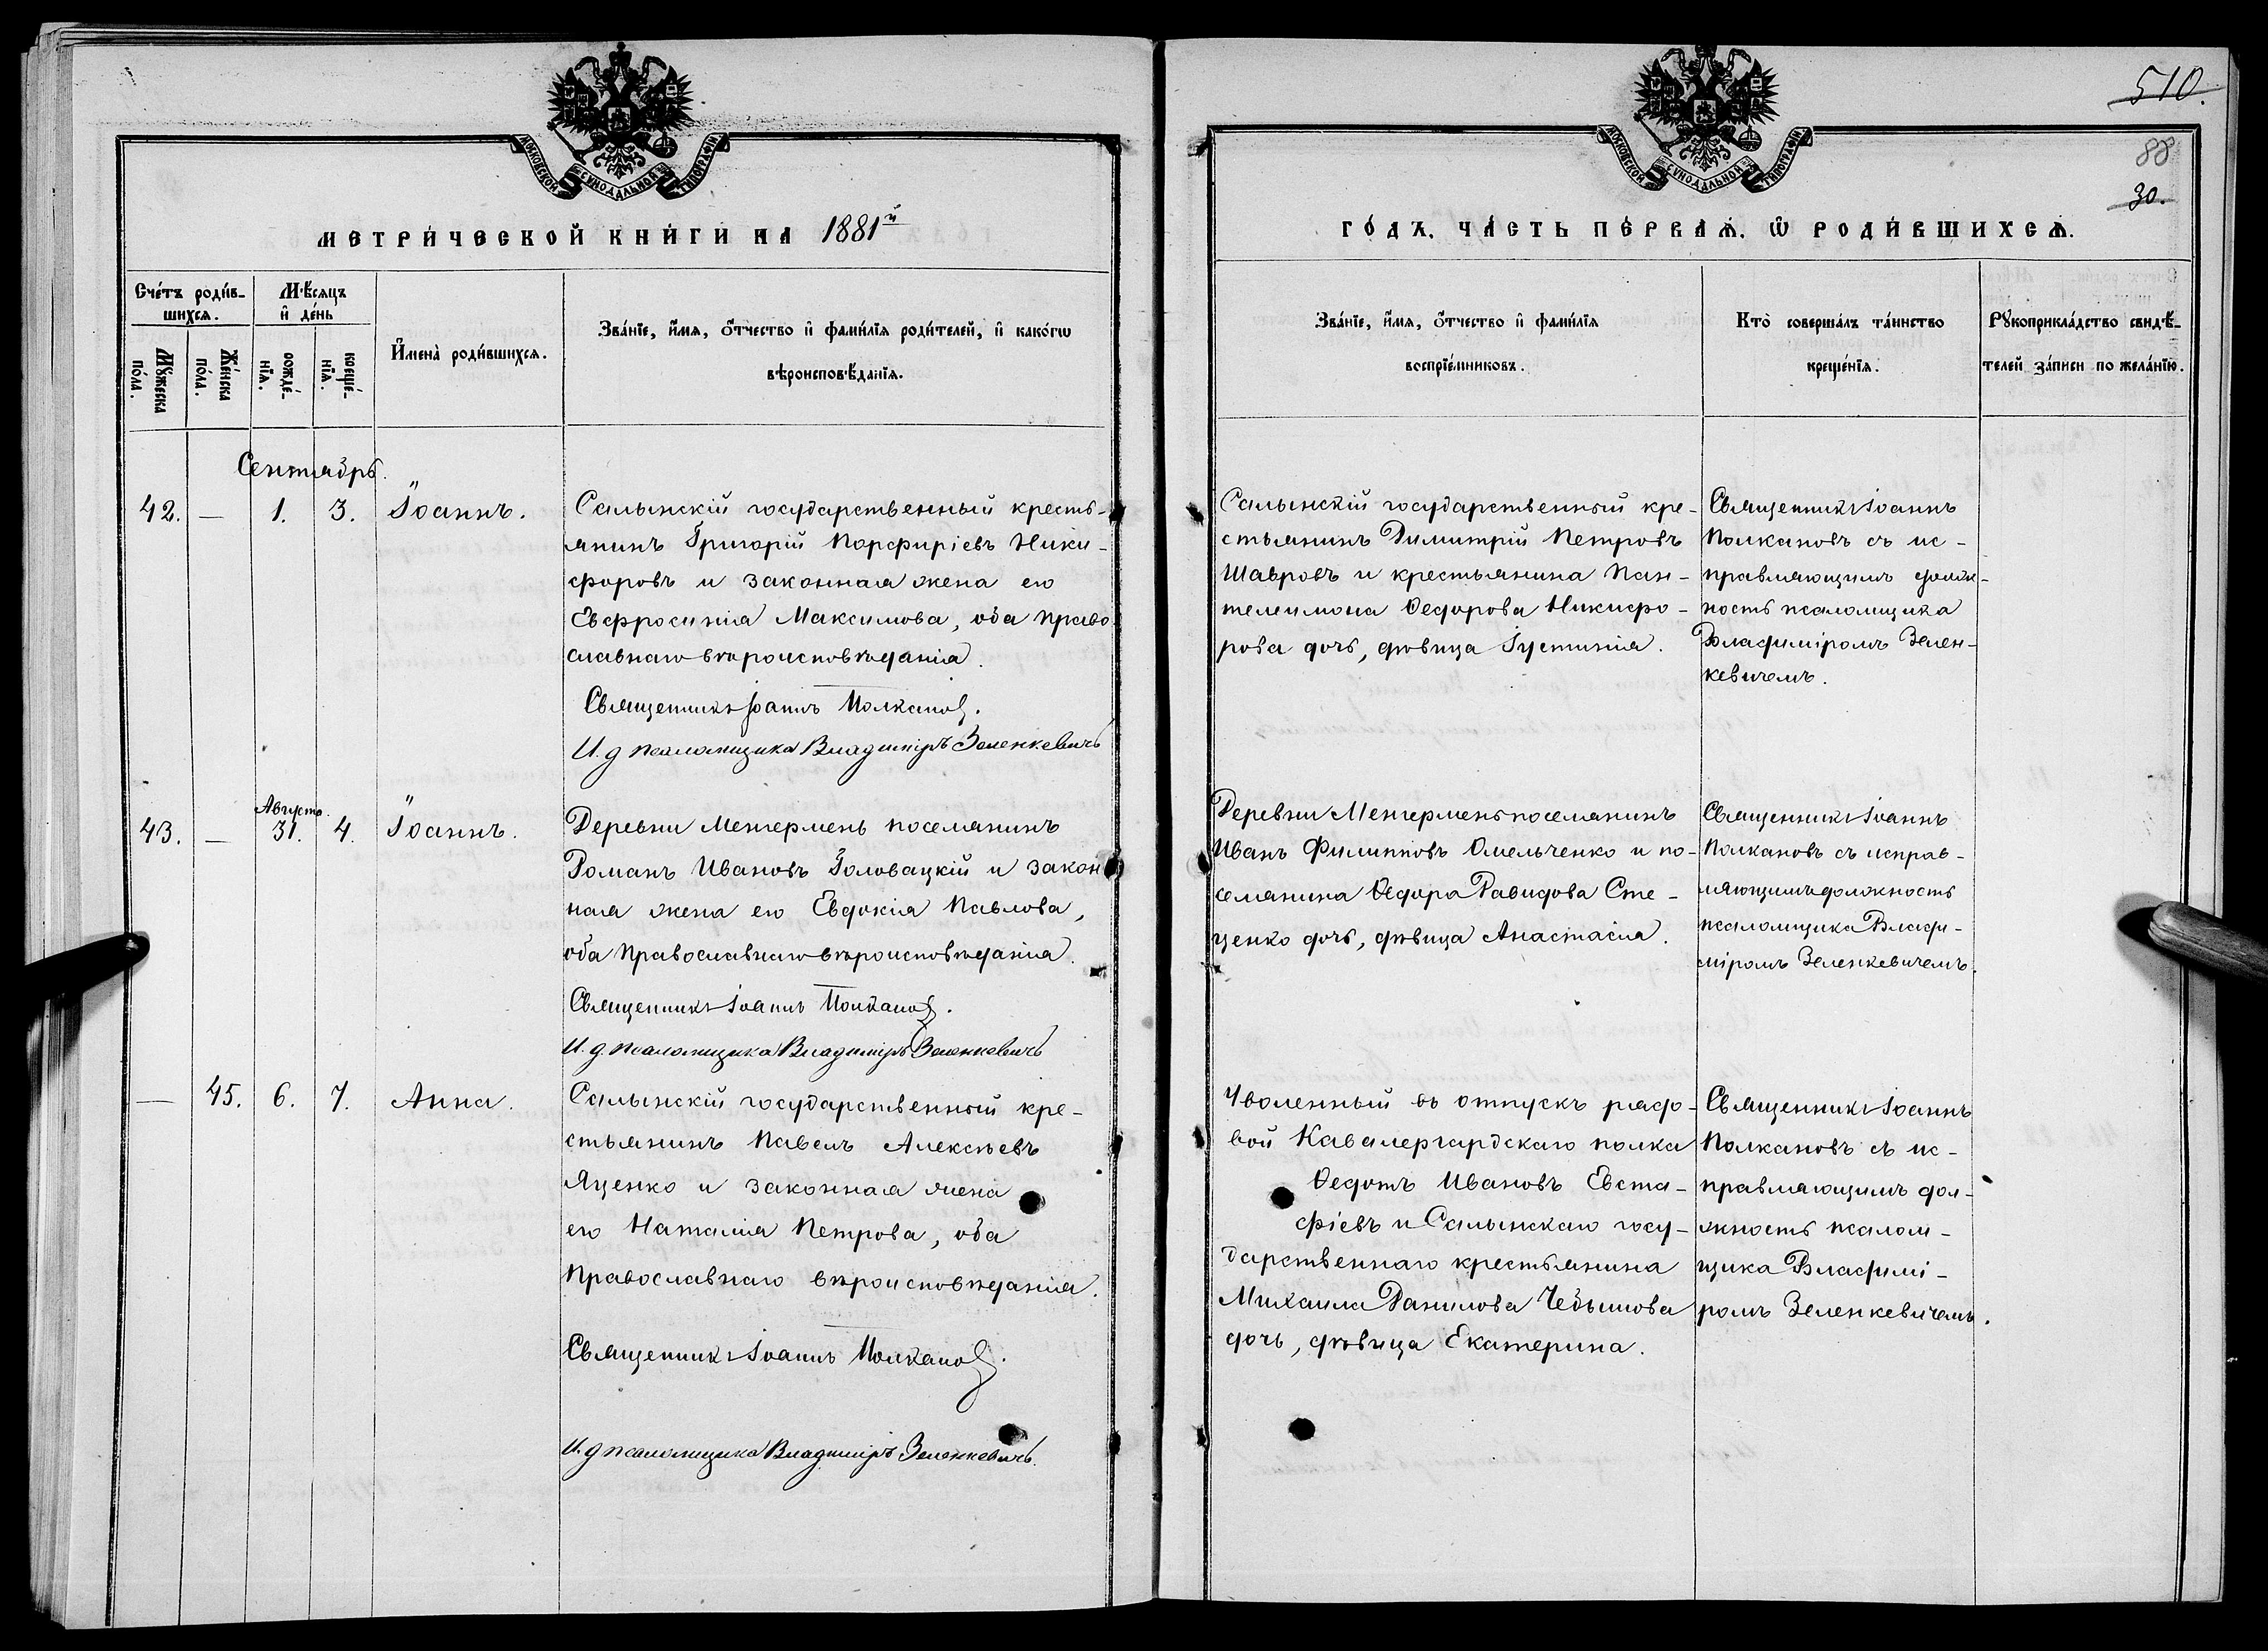 510.
88
30.
МОСКОВСКОЙ СѴНОДАЛЬНОЙ ТИПОГРАФІИ
МОСКОВСКОЙ СѴНОДАЛЬНОЙ ТИПОГРАФІИ
МЕТРИ́ЧЕСКОЙ КНИ́ГИ НА 1881й
ГО́ДЪ. ЧА́СТЬ ПЕ́РВАЯ. Ѽ РОДИ́ВШИХСЯ.
Сче́тъ роди́в-
шихся.
Мѣ́сяцъ
и҆ де́нь
Мꙋ́жеска
по́ла.
Же́нска
по́ла.
рожде́-
нїя.
креще́-
нїя.
И҆мена̀ роди́вшихся.
Зва́нїе, и҆́мя, ѻ҆́тчество и҆ фами́лїя роди́телей, и҆ како́гѡ
вѣроисповѣ́данїя.
Зва́нїе, и҆́мя, ѻ҆́тчество и҆ фами́лїя
воспрїе́мниковъ.
Кто̀ соверша́лъ та́инство
креще́нїя.
Рꙋкоприкла́дство свидѣ́-
телей за́писи по жела́нїю.
Сентябрь.
42. — 1. 3. Іоаннъ.
Салынскій государственный кресть-
янинъ Григорій Порфиріевъ Ники-
форовъ и законная жена его
Евфросинія Максимова, оба право-
славнаго вѣроисповѣданія.
Священникъ Іоаннъ Полкановъ.
И. д. псаломщика Владиміръ Зеленкевичъ
Салынскій государственный кре-
стьянинъ Димитрій Петровъ
Шавровъ и крестьянина Пан-
телеимона Ѳедорова Никифо-
рова дочь, дѣвица Іустинія.
Священникъ Іоаннъ
Полкановъ съ ис-
правляющимъ долж-
ность псаломщика
Владиміромъ Зелен-
кевичемъ.
Августъ.
43. — 31. 4. Іоаннъ.
Деревни Менгермень поселянинъ
Романъ Ивановъ Головацкій и закон-
ная жена его Евдокія Павлова,
оба Православнаго вѣроисповѣданія.
Священникъ Іоаннъ Полкановъ.
И. д. псаломщика Владиміръ Зеленкевичъ
Деревни Менгермень поселянинъ
Иванъ Филипповъ Омельченко и по-
селянина Ѳедора Давидова Сте-
ценко дочь, дѣвица Анастасія.
Священникъ Іоаннъ
Полкановъ съ исправ-
ляющимъ должность
псаломщика Влади-
міромъ Зеленкевичемъ.
— 45. 6. 7. Анна.
Салынскій государственный кре-
стьянинъ Павелъ Алексѣевъ
Яценко и законная жена
его Наталія Петрова, оба
Православнаго вѣроисповѣданія.
Священникъ Іоаннъ Полкановъ.
И. д. псаломщика Владиміръ Зеленкевичъ.
Уволенный въ отпускъ рядо-
вой Кавалергардскаго полка
Ѳедотъ Ивановъ Евста-
фіевъ и Салынскаго госу-
дарственнаго крестьянина
Михаила Данилова Чебышова
дочь, дѣвица Екатерина.
Священникъ Іоаннъ
Полкановъ съ ис-
правляющимъ дол-
жность псалом-
щика Владимі-
ромъ Зеленкевичемъ.